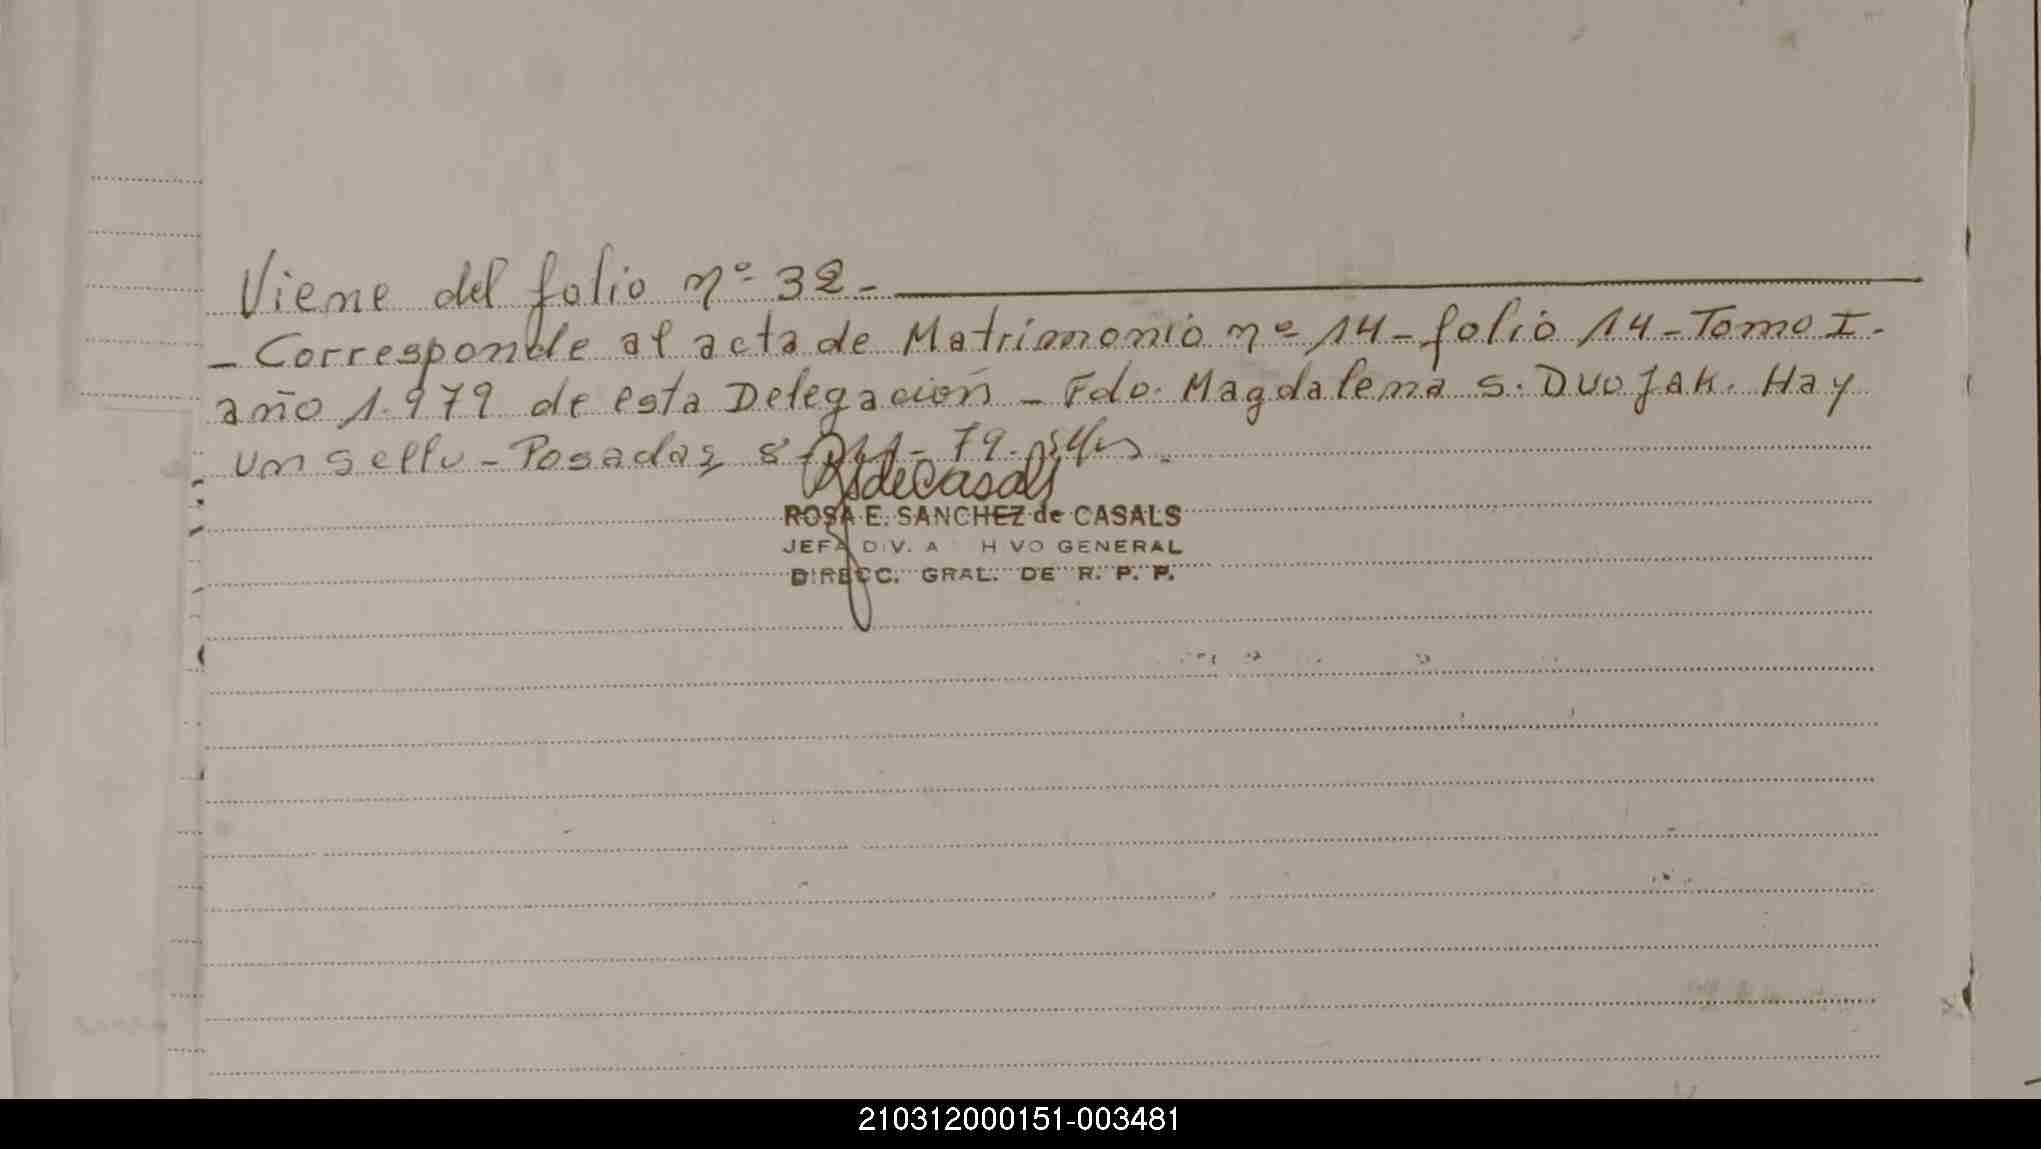 Viene del folio nº 32 -
- Corresponde al acta de Matrimonio nº 14 - folio 14 - Tomo I -
año 1.979 de esta Delegación - Fdo. Magdalena S. Duojak. Hay
un sello - Posadas 8 - 79.
RSdeCasals
ROSA E. SANCHEZ de CASALS
JEFA DIV. A HIVO GENERAL
DIRECC. GRAL. DE R. P. P.
210312000151-003481